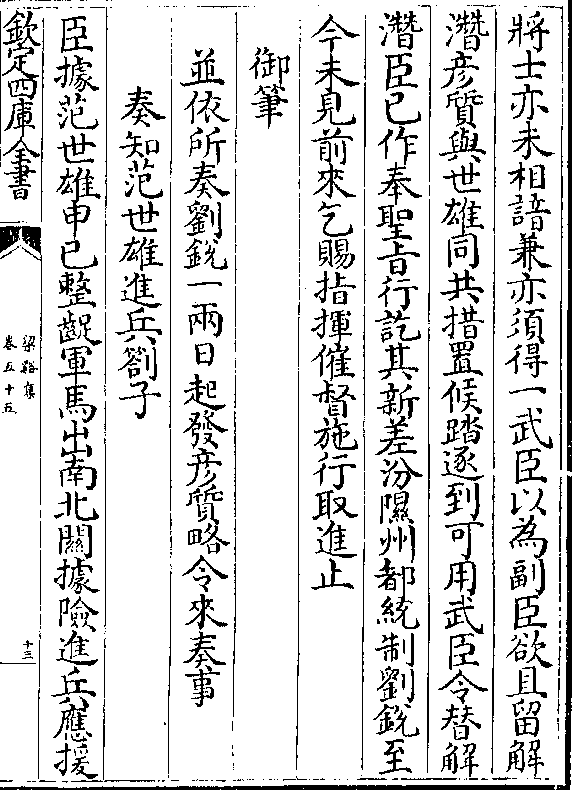 將士亦未相諳兼亦須得一武臣以為副臣欲且留解
潛彦質與世雄同共措置候踏逐到可用武臣令替解
潛臣已作奉聖㫖行訖其新差汾隰州都統制劉鋭至
今未見前來乞賜指揮催督施行取進止
御筆
並依所奏劉鋭一兩日起發彦質略令來奏事
奏知范世雄進兵劄子
臣據范世雄申已整龊軍馬出南北關據險進兵應援
欽定四庫全書
梁谿集
卷五十五
十三